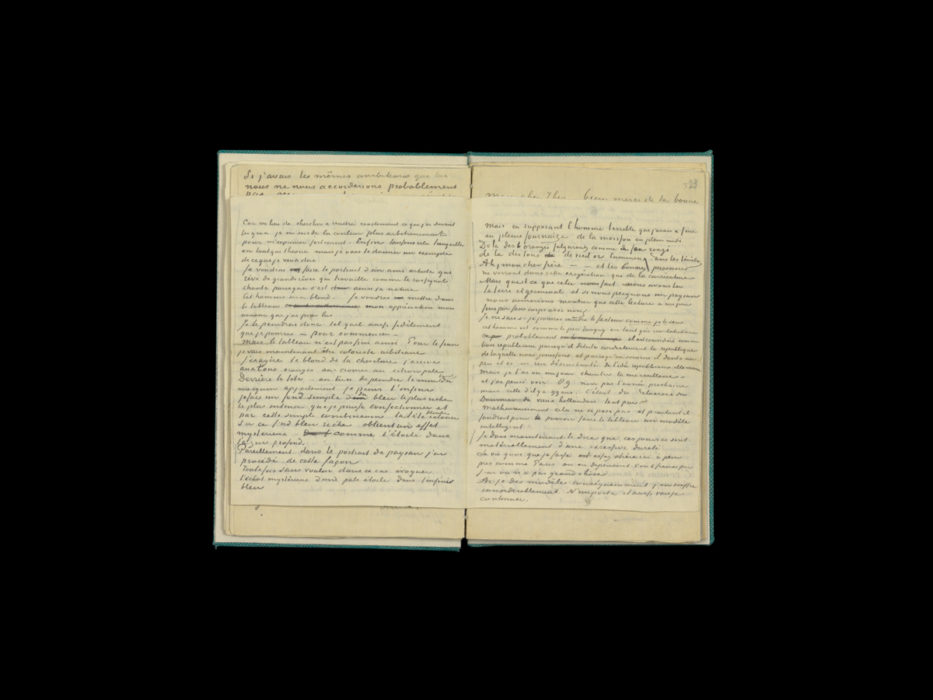 Si j'avais les mêmes ambitions que toi
nous ne nous accorderions probablement
Car au lieu de chercher à rendre exactement ce que j'ai devant
les yeux je me sers de la couleur plus arbitrairement
pour m'exprimer fortement. Enfin laissons cela tranquille
en tant que théorie mais je vais te donner un exemple
de ce que je veux dire.
Je voudrais faire le portrait d'un ami artiste qui
rêve de grands rêves qui travaille comme le rossignol
chante parceque c'est ainsi sa nature
Cet homme sera blond. Je voudrais mettre dans
le tableau mon appréciation mon
amour que j'ai pour lui.
Je le peindrai donc tel quel aussi fidèlement
que je pourrai pour commencer –
Mais le tableau n'est pas fini ainsi. Pour le finir
je vais maintenant être coloriste arbitraire
J'exagère le blond de la chevelure j'arrive
aux tons orangés aux chromes au citron pâle
Derrière la tête – au lieu de peindre le mur banal du
mesquin appartement je peins l'infini
je fais un fond simple du bleu le plus riche
le plus intense que je puisse confectionner et
par cette simple combinaison la tête blonde éclairée
sur ce fond bleu riche obtient un effet
mystérieux comme l'étoile dans
l'azur profond.
Pareillement dans le portrait de paysan j'ai
procédé de cette façon
Toutefois sans vouloir dans ce cas évoquer
l'éclat mystérieux d'une pâle étoile dans l'infini
bleu
523
mon cher Theo bien merci de ta bonne
Mais en supposant l'homme terrible que j'avais à faire
en pleine fournaise de la moisson en plein midi
De là des orangés fulgurants comme du fer rougi
de là des tons de vieil or lumineux dans les ténèbres
Ah, mon cher frère – – et les bonnes personnes
ne verront dans cette exagération que de la caricature
Mais qu'est ce que cela nous fait nous avons lu
la terre et germinal et si nous peignons un paysan
nous aimerions montrer que cette lecture a un peu
fini par faire corps avec nous
Je ne sais si je pourrai peindre le facteur comme je le sens
cet homme est comme le père Tanguy en tant que révolutionnaire
probablement il est considéré comme
bon républicain parcequ'il déteste cordialement la republique
de laquelle nous jouissons et parcequ'en somme il doute un
peu et est un peu désenchanté de l'idée républicaine elle même
Mais je l'ai un jour vu chanter la marseillaise
et j'ai pensé voir 89 non pas l'année prochaine
mais celle d'il y a 99 ans. C'était du Delacroix du
Daumier du vieux hollandais tout pur
Malheureusement cela ne se pose pas et pourtant il
faudrait pour pouvoir faire le tableau un modèle
intelligent
Je dois maintenant te dire que ces jours ci sont
matériellement d'une excessive dureté